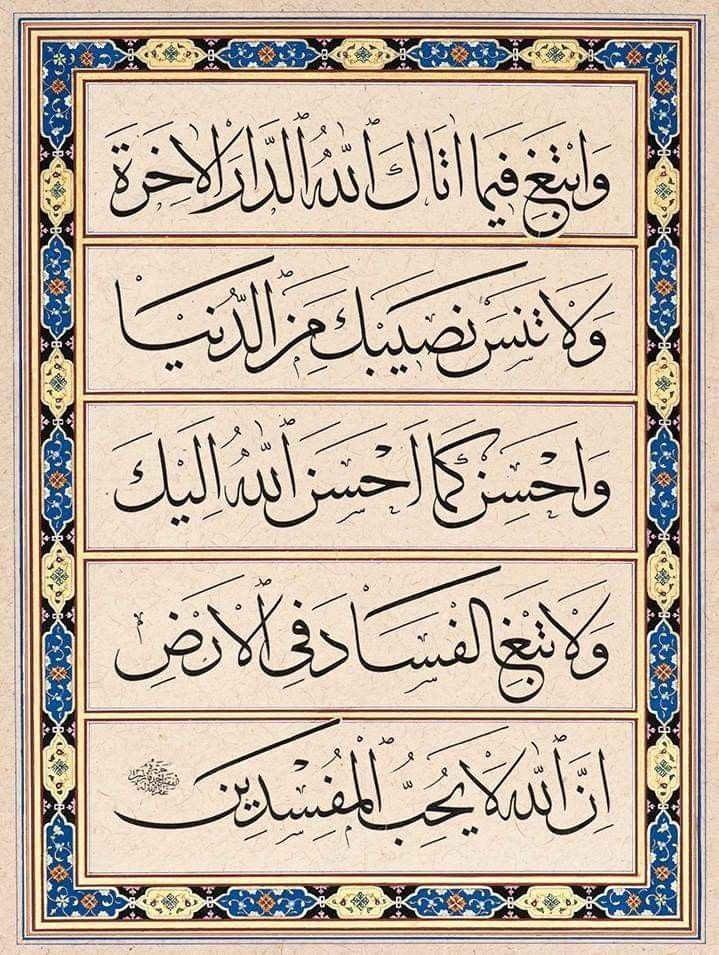 وَابْتَغِ فيمَا اتَاكَ اللّٰهُ الدَّارَ الْاخِرَةَ
وَلَا تَنْسَ نَصيبَكَ مِنَ الدُّنْيَا
وَاَحْسِنْ كَمَا اَحْسَنَ اللّٰهُ اِلَيْكَ
وَلَا تَبْغِ الْفَسَادَ فِى الْاَرْضِ
اِنَّ اللّٰهَ لَا يُحِبُّ الْمُفْسِدينَ